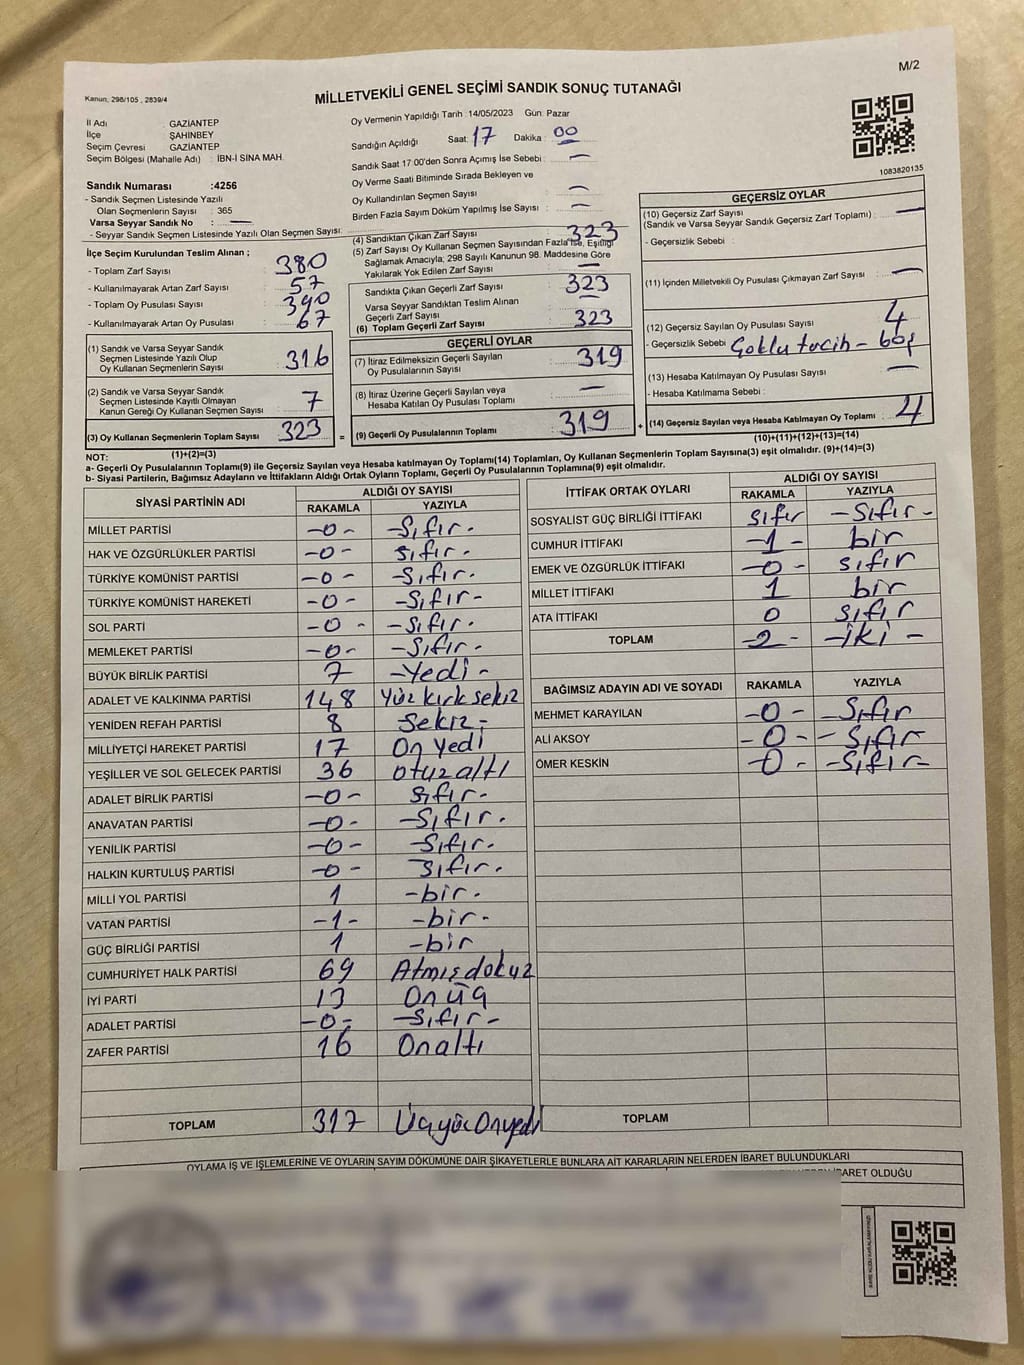 M/2
Kanun, 298/105 , 2839/4
MİLLETVEKİLİ GENEL SEÇİMİ SANDIK SONUÇ TUTANAĞI
İl Adı : GAZİANTEP
İlçe : ŞAHİNBEY
Seçim Çevresi : GAZİANTEP
Seçim Bölgesi (Mahalle Adı) : İBN-İ SİNA MAH.
Oy Vermenin Yapıldığı Tarih : 14/05/2023 Gün: Pazar
Sandığın Açıldığı Saat: 17 Dakika : 00
Sandık Saat 17:00'den Sonra Açımış İse Sebebi : —
Oy Verme Saati Bitiminde Sırada Bekleyen ve
Oy Kullandırılan Seçmen Sayısı : —
Birden Fazla Sayım Döküm Yapılmış İse Sayısı : —
1083820135
Sandık Numarası :4256
- Sandık Seçmen Listesinde Yazılı
Olan Seçmenlerin Sayısı : 365
Varsa Seyyar Sandık No : —
- Seyyar Sandık Seçmen Listesinde Yazılı Olan Seçmen Sayısı:
İlçe Seçim Kurulundan Teslim Alınan ;
- Toplam Zarf Sayısı : 380
- Kullanılmayarak Artan Zarf Sayısı : 57
- Toplam Oy Pusulası Sayısı : 390
- Kullanılmayarak Artan Oy Pusulası : 67
(1) Sandık ve Varsa Seyyar Sandık
Seçmen Listesinde Yazılı Olup
Oy Kullanan Seçmenlerin Sayısı : 316
(2) Sandık ve Varsa Seyyar Sandık
Seçmen Listesinde Kayıtlı Olmayan
Kanun Gereği Oy Kullanan Seçmen Sayısı : 7
(3) Oy Kullanan Seçmenlerin Toplam Sayısı : 323
(1)+(2)=(3)
(4) Sandıktan Çıkan Zarf Sayısı : 323
(5) Zarf Sayısı Oy Kullanan Seçmen Sayısından Fazla İse, Eşitliği
Sağlamak Amacıyla; 298 Sayılı Kanunun 98. Maddesine Göre
Yakılarak Yok Edilen Zarf Sayısı : —
Sandıkta Çıkan Geçerli Zarf Sayısı : 323
Varsa Seyyar Sandıktan Teslim Alınan
Geçerli Zarf Sayısı : —
(6) Toplam Geçerli Zarf Sayısı : 323
GEÇERLİ OYLAR
(7) İtiraz Edilmeksizin Geçerli Sayılan
Oy Pusulalarının Sayısı : 319
(8) İtiraz Üzerine Geçerli Sayılan veya
Hesaba Katılan Oy Pusulası Toplamı : —
= (9) Geçerli Oy Pusulalarının Toplamı : 319 +
GEÇERSİZ OYLAR
(10) Geçersiz Zarf Sayısı : —
(Sandık ve Varsa Seyyar Sandık Geçersiz Zarf Toplamı)
- Geçersizlik Sebebi :
(11) İçinden Milletvekili Oy Pusulası Çıkmayan Zarf Sayısı : —
(12) Geçersiz Sayılan Oy Pusulası Sayısı : 4
- Geçersizlik Sebebi : Çoklu tercih - boş
(13) Hesaba Katılmayan Oy Pusulası Sayısı : —
- Hesaba Katılmama Sebebi :
(14) Geçersiz Sayılan veya Hesaba Katılmayan Oy Toplamı : 4
(10)+(11)+(12)+(13)=(14)
NOT:
a- Geçerli Oy Pusulalarının Toplamı(9) ile Geçersiz Sayılan veya Hesaba katılmayan Oy Toplamı(14) Toplamları, Oy Kullanan Seçmenlerin Toplam Sayısına(3) eşit olmalıdır. (9)+(14)=(3)
b- Siyasi Partilerin, Bağımsız Adayların ve İttifakların Aldığı Ortak Oyların Toplamı, Geçerli Oy Pusulalarının Toplamına(9) eşit olmalıdır.
SİYASİ PARTİNİN ADI ALDIĞI OY SAYISI
RAKAMLA YAZIYLA
MİLLET PARTİSİ -0- -Sıfır-
HAK VE ÖZGÜRLÜKLER PARTİSİ -0- sıfır-
TÜRKİYE KOMÜNİST PARTİSİ -0- -Sıfır-
TÜRKİYE KOMÜNİST HAREKETİ -0- -Sıfır-
SOL PARTİ -0- -Sıfır-
MEMLEKET PARTİSİ -0- -Sıfır-
BÜYÜK BİRLİK PARTİSİ 7 -Yedi-
ADALET VE KALKINMA PARTİSİ 148 Yüz kırk sekiz
YENİDEN REFAH PARTİSİ 8 Sekiz-
MİLLİYETÇİ HAREKET PARTİSİ 17 On Yedi
YEŞİLLER VE SOL GELECEK PARTİSİ 36 otuz altı
ADALET BİRLİK PARTİSİ -0- Sıfır-
ANAVATAN PARTİSİ -0- -Sıfır-
YENİLİK PARTİSİ -0- -Sıfır-
HALKIN KURTULUŞ PARTİSİ -0- Sıfır-
MİLLİ YOL PARTİSİ 1 -bir-
VATAN PARTİSİ -1- -bir-
GÜÇ BİRLİĞİ PARTİSİ 1 -bir
CUMHURİYET HALK PARTİSİ 69 Atmış dokuz
İYİ PARTİ 13 On üç
ADALET PARTİSİ -0- -Sıfır-
ZAFER PARTİSİ 16 Onaltı
TOPLAM 317 Üçyüz Onyedi
İTTİFAK ORTAK OYLARI ALDIĞI OY SAYISI
RAKAMLA YAZIYLA
SOSYALİST GÜÇ BİRLİĞİ İTTİFAKI sıfır -Sıfır-
CUMHUR İTTİFAKI -1- bir
EMEK VE ÖZGÜRLÜK İTTİFAKI -0- sıfır
MİLLET İTTİFAKI 1 bir
ATA İTTİFAKI 0 sıfır
TOPLAM -2- -iki-
BAĞIMSIZ ADAYIN ADI VE SOYADI RAKAMLA YAZIYLA
MEHMET KARAYILAN -0- -Sıfır
ALİ AKSOY -0- -Sıfır
ÖMER KESKİN -0- -Sıfır-
TOPLAM
OYLAMA İŞ VE İŞLEMLERİNE VE OYLARIN SAYIM DÖKÜMÜNE DAİR ŞİKAYETLERLE BUNLARA AİT KARARLARIN NELERDEN İBARET BULUNDUKLARI
İBARET OLDUĞU